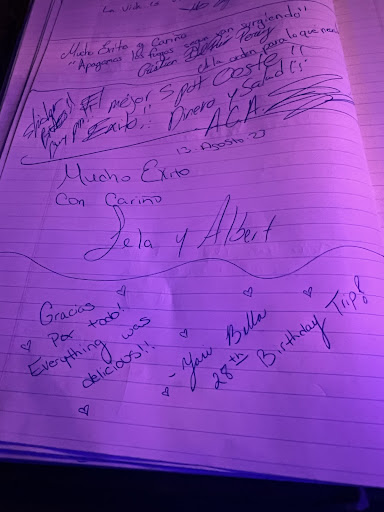 La vida es
Mucho Exito y Cariño
"Apagamos los fuegos
van surgiendo"
Cristian
Perez
a la orden para lo que
El mejor Spot Oeste!!
Exito!! Dinero y Salud!!
A.G.A.
13 Agosto 23
Mucho Exito
Con Cariño
Lela y Albert
Gracias
Por todo!
Everything was
delicious!!
- Yari Bella
28th Birthday Trip!